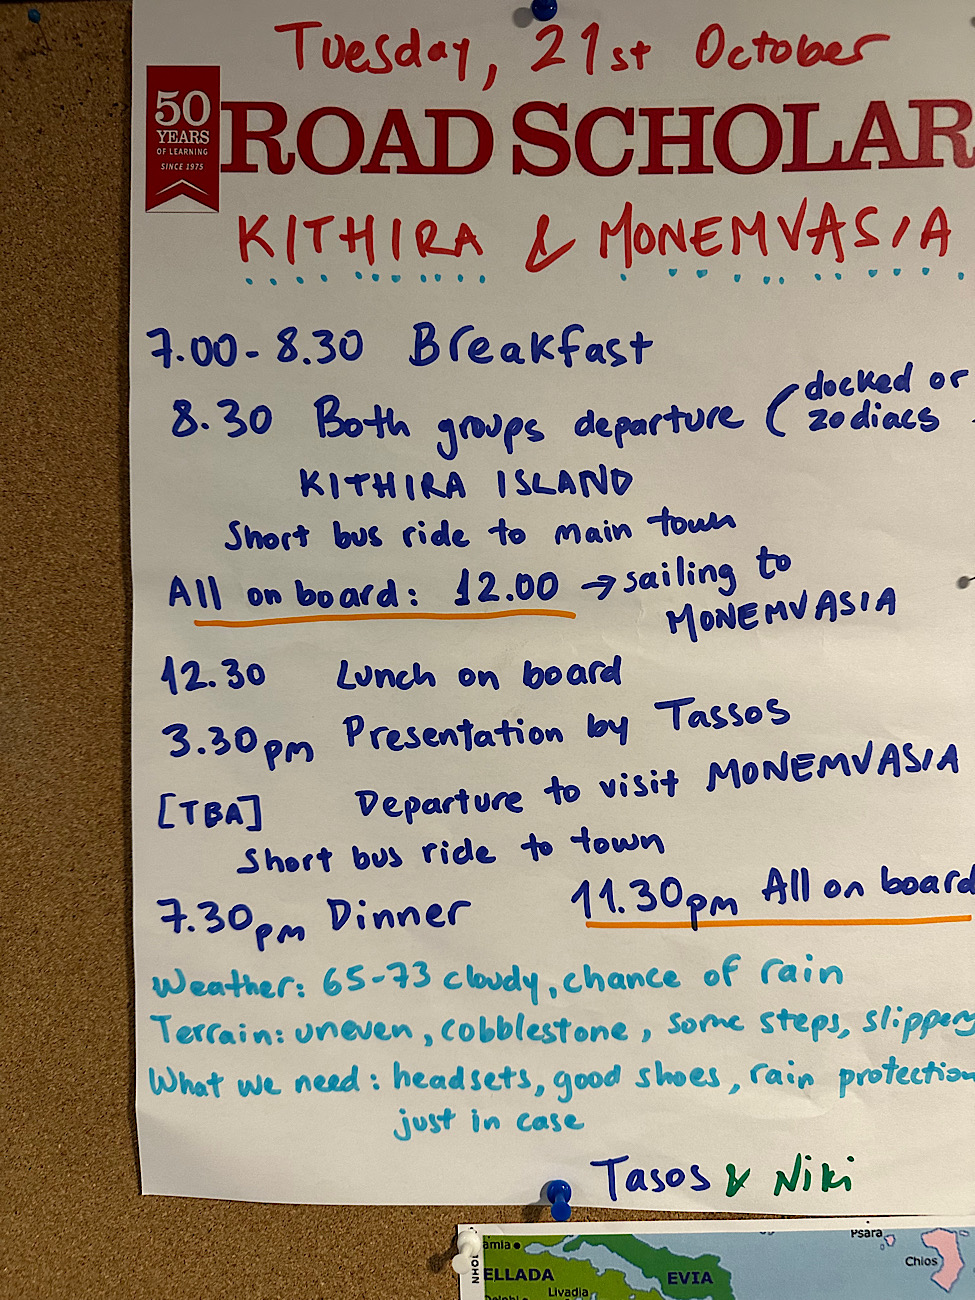 Tuesday, 21st October
50
YEARS
OF LEARNING
SINCE 1975
ROAD SCHOLAR
KITHIRA & MONEMVASIA
7.00-8.30 Breakfast
8.30 Both groups departure (docked or
zodiacs
KITHIRA ISLAND
Short bus ride to main town
All on board: 12.00 → sailing to
MONEMVASIA
12.30 Lunch on board
3.30pm Presentation by TASSOS
[TBA] Departure to visit MONEMVASIA
Short bus ride to town
7.30pm Dinner 11.30pm All on board
Weather: 65-73 cloudy, chance of rain
Terrain: uneven, cobblestone, some steps, slippery
What we need: headsets, good shoes, rain protection
just in case
Tasos & Niki
amia
ELLADA
EVIA
Livadia
Psara
Chios